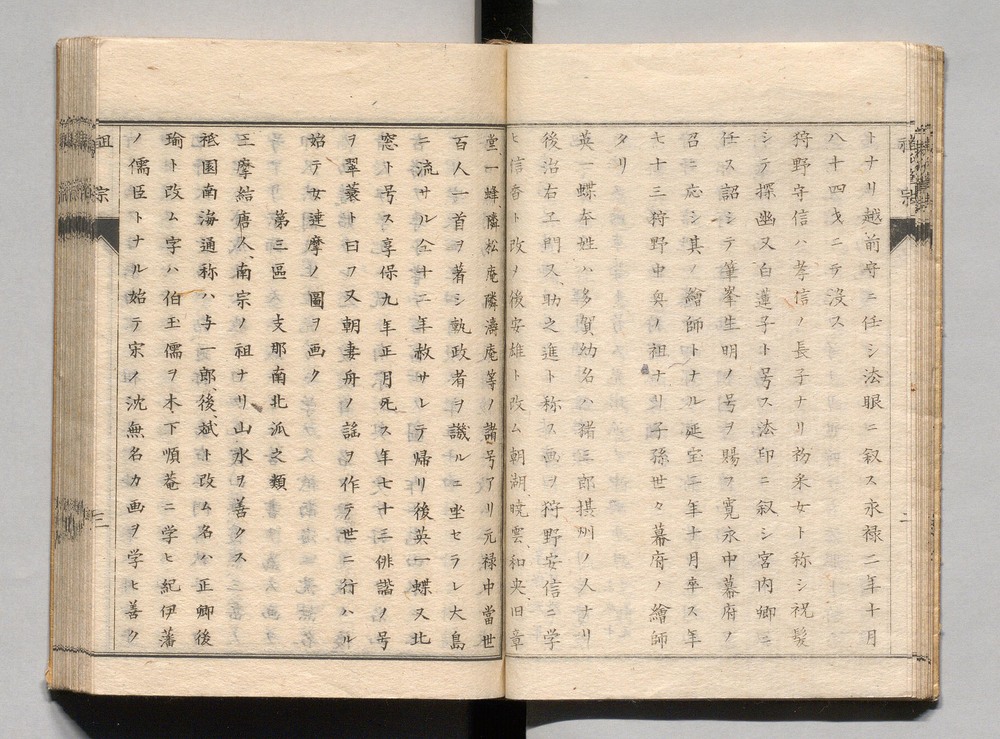 トナリ越前守ニ任シ法眼ニ叙ス永禄二年十月
八十四才ニテ没ス
狩野守信ハ孝信ノ長子ナリ初采女ト称シ祝髪
シテ探幽又白蓮子ト号ス法印ニ叙シ宮内卿ニ
任ス詔シテ筆峯生明ノ号ヲ賜フ寛永中幕府ノ
召ニ応シ其ノ繪師トナル延宝二年十月卒ス年
七十三狩野中奥ノ祖ナリ子孫世々幕府ノ繪師
タリ
英一蝶本姓ハ多賀幼名ハ猪三郎摂州ノ人ナリ
後治右エ門又助之進ト称ス画ヲ狩野安信ニ学
ヒ信香ト改メ後安雄ト改ム朝湖暁雲和央旧章
堂一蜂隣松庵隣濤庵等ノ諸号アリ元禄中當世
百人一首ヲ著シ執政者ヲ譏ルニ坐セラレ大島
ニ流サル仝十二年赦サレテ帰リ後英一蝶又北
窓ト号ス享保九年正月死ス年七十三俳諧ノ号
ヲ翠蓑ト曰フ又朝妻舟ノ謡ヲ作テ世ニ行ハル
始テ女達摩ノ圖ヲ画ク
第三區 支那南北派之類
王摩結唐人南宗ノ祖ナリ山水ヲ善クス
祗園南海通称ハ与一郎後斌ト改ム名ハ正卿後
瑜ト改ム字ハ伯玉儒ヲ木下順菴ニ学ヒ紀伊藩
ノ儒臣トナル始テ宋ノ沈無名カ画ヲ学ヒ善ク
祖宗
三
宗
二